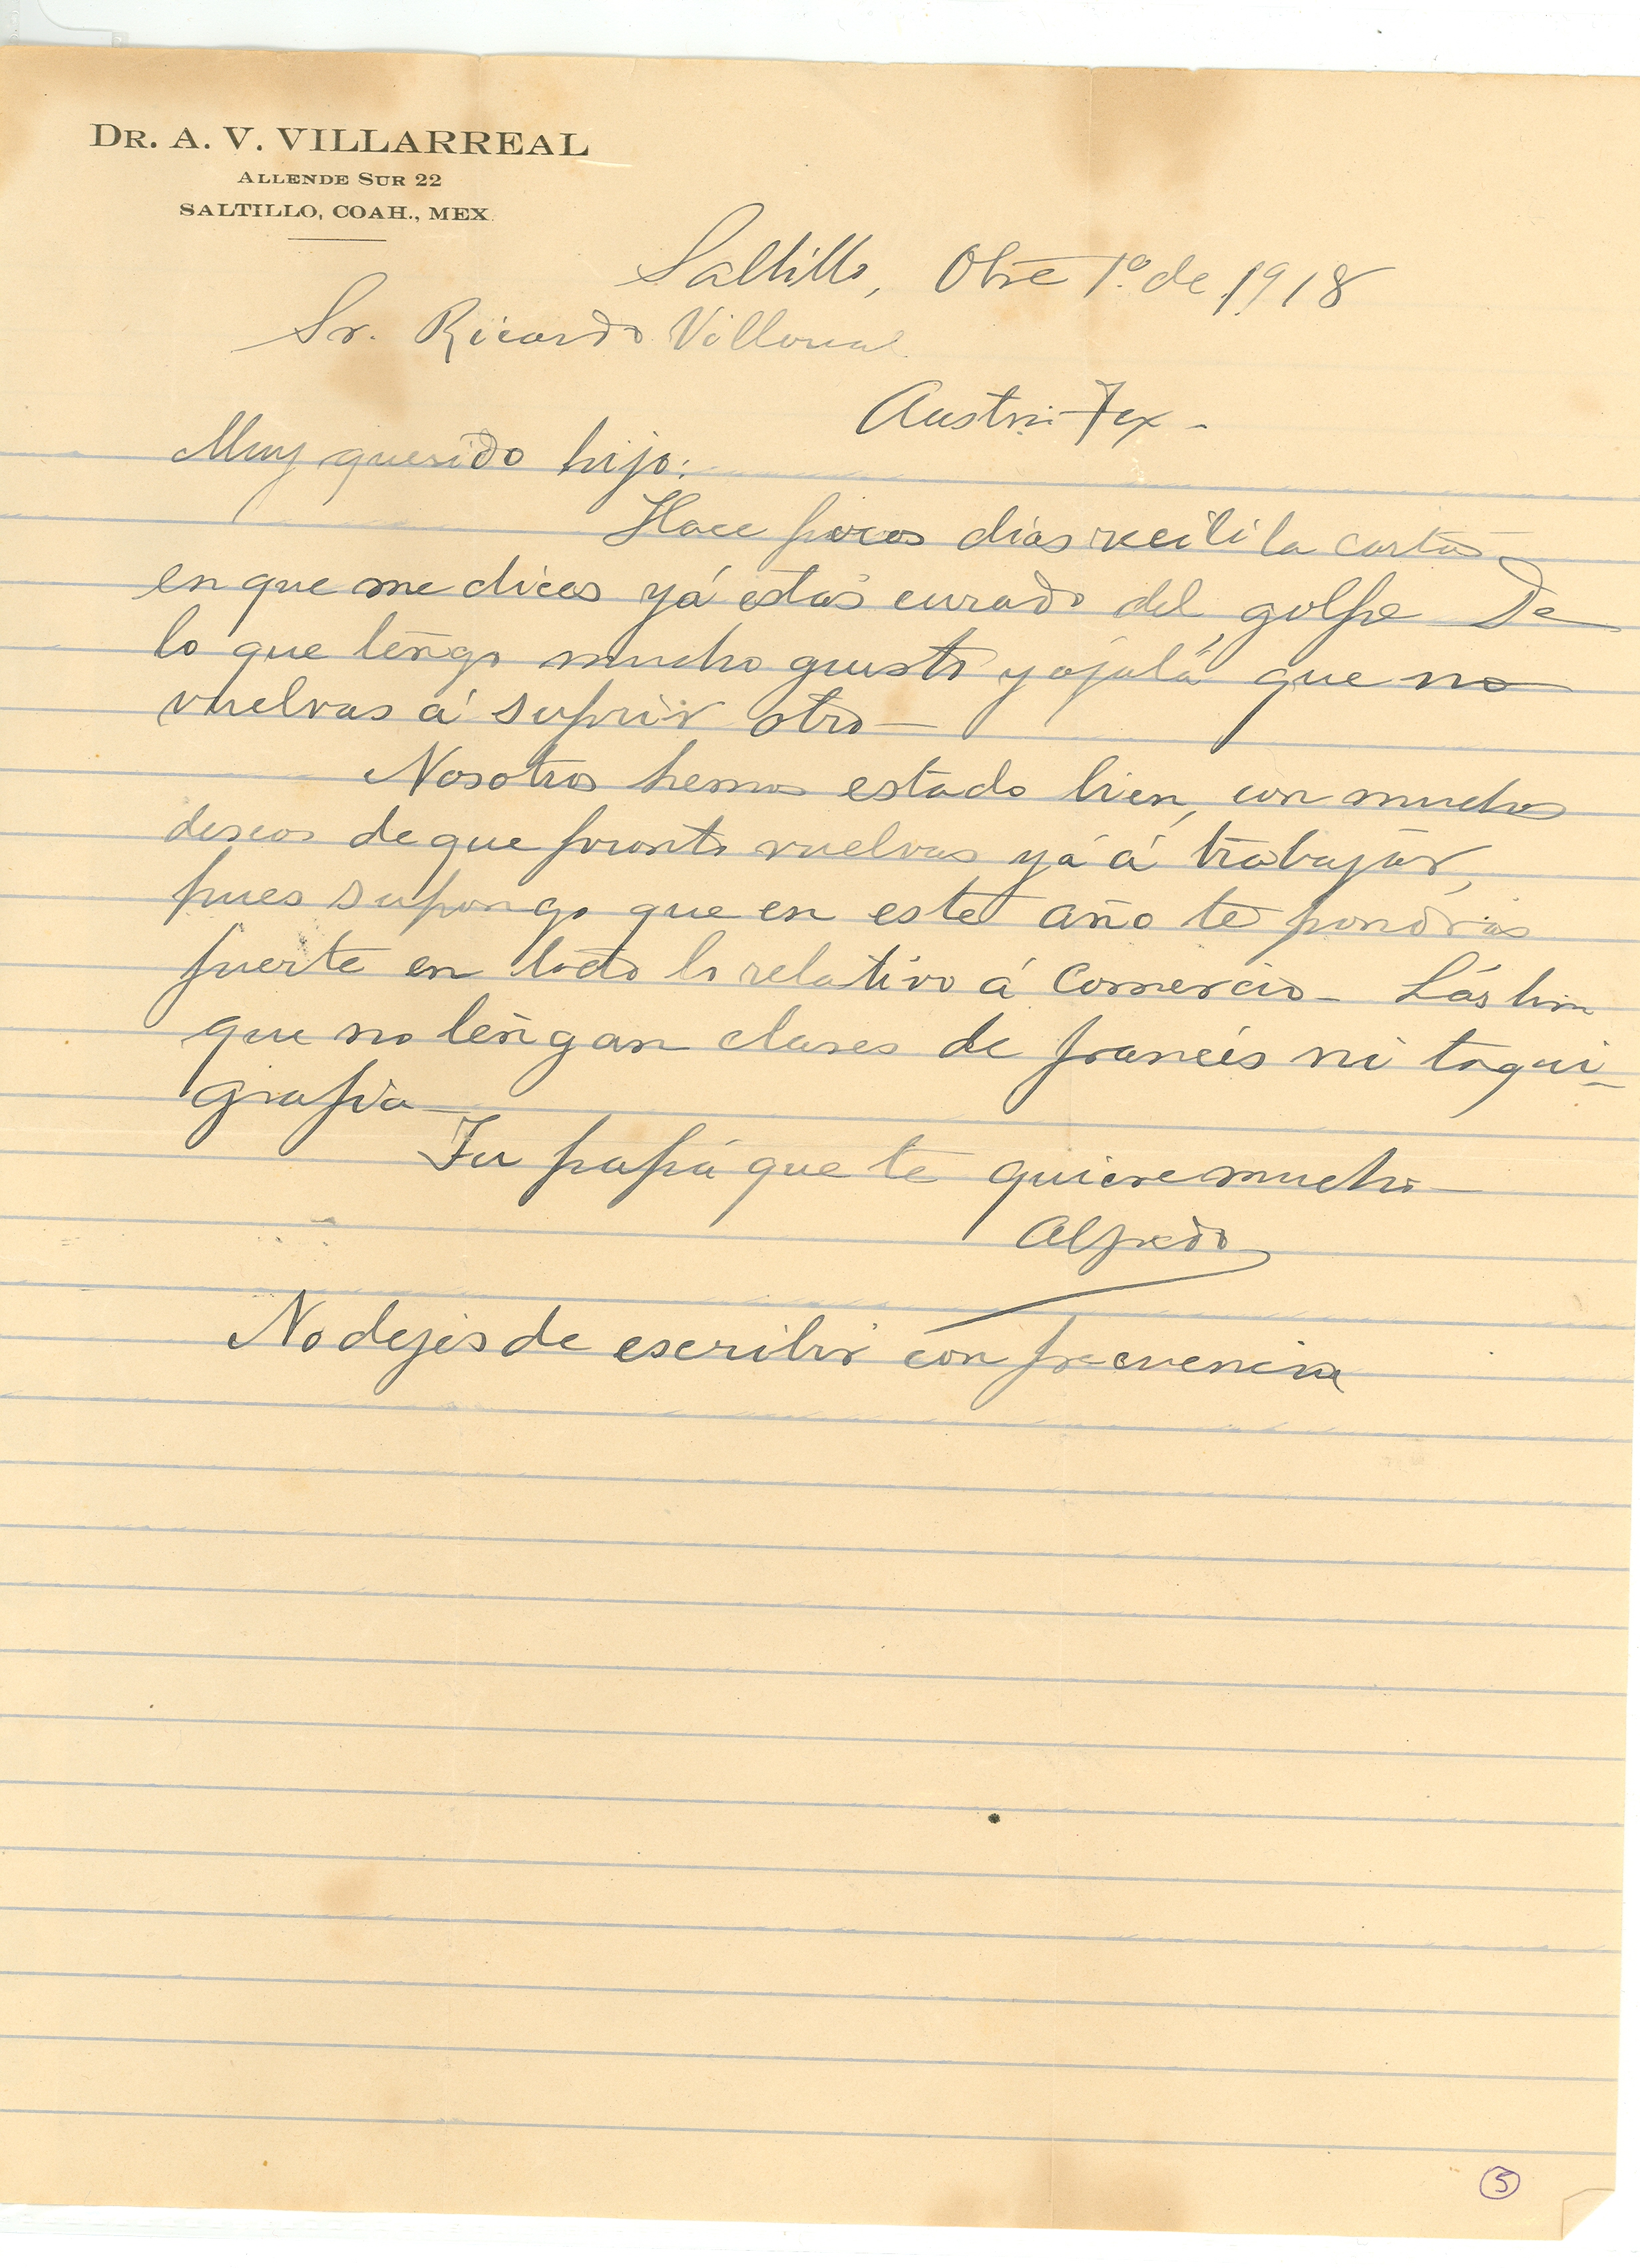 DR. A. V. VILLARREAL
ALLENDE SUR 22
SALTILLO, COAH., MEX.
Saltillo, Obre 1º. de 1918
Sr. Ricardo Villarreal
Austin Tex -
Muy querido hijo:
Hace pocos dias recibi la carta
en que me dices yá estás curado del golpe de
lo que tengo mucho gusto y ojalá que no
vuelvas á sufrir otro—
Nosotros hemos estado bien, con muchos
deseos de que pronto vuelvas yá á trabajar,
pues supongo que en este año te pondrás
fuerte en todo lo relativo á Comercio— Lástima
que no tengan clases de francés ni taqui-
grafia—
Tu papá que te quiere mucho—
Alfredo
No dejes de escribir con frecuencia
5